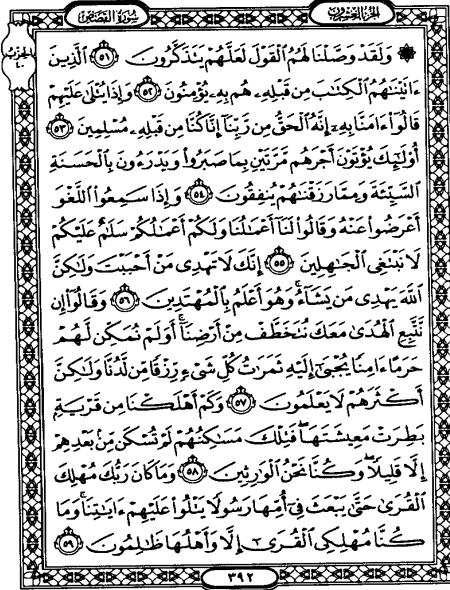 الجزء العشرون
سورة القصص
الحزب ٤٠
۞ وَلَقَدْ وَصَّلْنَا لَهُمُ ٱلْقَوْلَ لَعَلَّهُمْ يَتَذَكَّرُونَ ٥١ ٱلَّذِينَ
ءَاتَيْنَٰهُمُ ٱلْكِتَٰبَ مِن قَبْلِهِۦ هُم بِهِۦ يُؤْمِنُونَ ٥٢ وَإِذَا يُتْلَىٰ عَلَيْهِمْ
قَالُوٓا۟ ءَامَنَّا بِهِۦٓ إِنَّهُ ٱلْحَقُّ مِن رَّبِّنَآ إِنَّا كُنَّا مِن قَبْلِهِۦ مُسْلِمِينَ ٥٣
أُو۟لَٰٓئِكَ يُؤْتَوْنَ أَجْرَهُم مَّرَّتَيْنِ بِمَا صَبَرُوا۟ وَيَدْرَءُونَ بِٱلْحَسَنَةِ
ٱلسَّيِّئَةَ وَمِمَّا رَزَقْنَٰهُمْ يُنفِقُونَ ٥٤ وَإِذَا سَمِعُوا۟ ٱللَّغْوَ
أَعْرَضُوا۟ عَنْهُ وَقَالُوا۟ لَنَآ أَعْمَٰلُنَا وَلَكُمْ أَعْمَٰلُكُمْ سَلَٰمٌ عَلَيْكُمْ
لَا نَبْتَغِى ٱلْجَٰهِلِينَ ٥٥ إِنَّكَ لَا تَهْدِى مَنْ أَحْبَبْتَ وَلَٰكِنَّ
ٱللَّهَ يَهْدِى مَن يَشَآءُ ۚ وَهُوَ أَعْلَمُ بِٱلْمُهْتَدِينَ ٥٦ وَقَالُوٓا۟ إِن
نَّتَّبِعِ ٱلْهُدَىٰ مَعَكَ نُتَخَطَّفْ مِنْ أَرْضِنَآ ۚ أَوَلَمْ نُمَكِّن لَّهُمْ
حَرَمًا ءَامِنًا يُجْبَىٰٓ إِلَيْهِ ثَمَرَٰتُ كُلِّ شَىْءٍ رِّزْقًا مِّن لَّدُنَّا وَلَٰكِنَّ
أَكْثَرَهُمْ لَا يَعْلَمُونَ ٥٧ وَكَمْ أَهْلَكْنَا مِن قَرْيَةٍۭ
بَطِرَتْ مَعِيشَتَهَا ۖ فَتِلْكَ مَسَٰكِنُهُمْ لَمْ تُسْكَن مِّنۢ بَعْدِهِمْ
إِلَّا قَلِيلًا ۖ وَكُنَّا نَحْنُ ٱلْوَٰرِثِينَ ٥٨ وَمَا كَانَ رَبُّكَ مُهْلِكَ
ٱلْقُرَىٰ حَتَّىٰ يَبْعَثَ فِىٓ أُمِّهَا رَسُولًا يَتْلُوا۟ عَلَيْهِمْ ءَايَٰتِنَا ۚ وَمَا
كُنَّا مُهْلِكِى ٱلْقُرَىٰٓ إِلَّا وَأَهْلُهَا ظَٰلِمُونَ ٥٩
٣٩٢